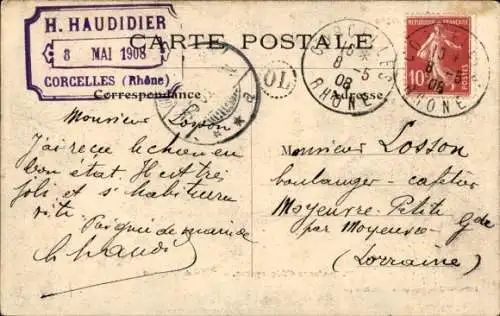 H. HAUDIDIER
8 MAI 1908
CORCELLES (Rhône)
CARTE POSTALE
Correspondance
Adresse
CORCELLES
8 -5
08
RHÔNE
OL
REPUBLIQUE FRANÇAISE
10
POSTES
Monsieur Losson
J'ai reçu le chien en
bon état. Il est très
joli et s'habituera
vite.
Poignée de main de
Monsieur Losson
boulanger - cafetier
Moyeuvre-Petite
par Moyeuvre Gde
(Lorraine)